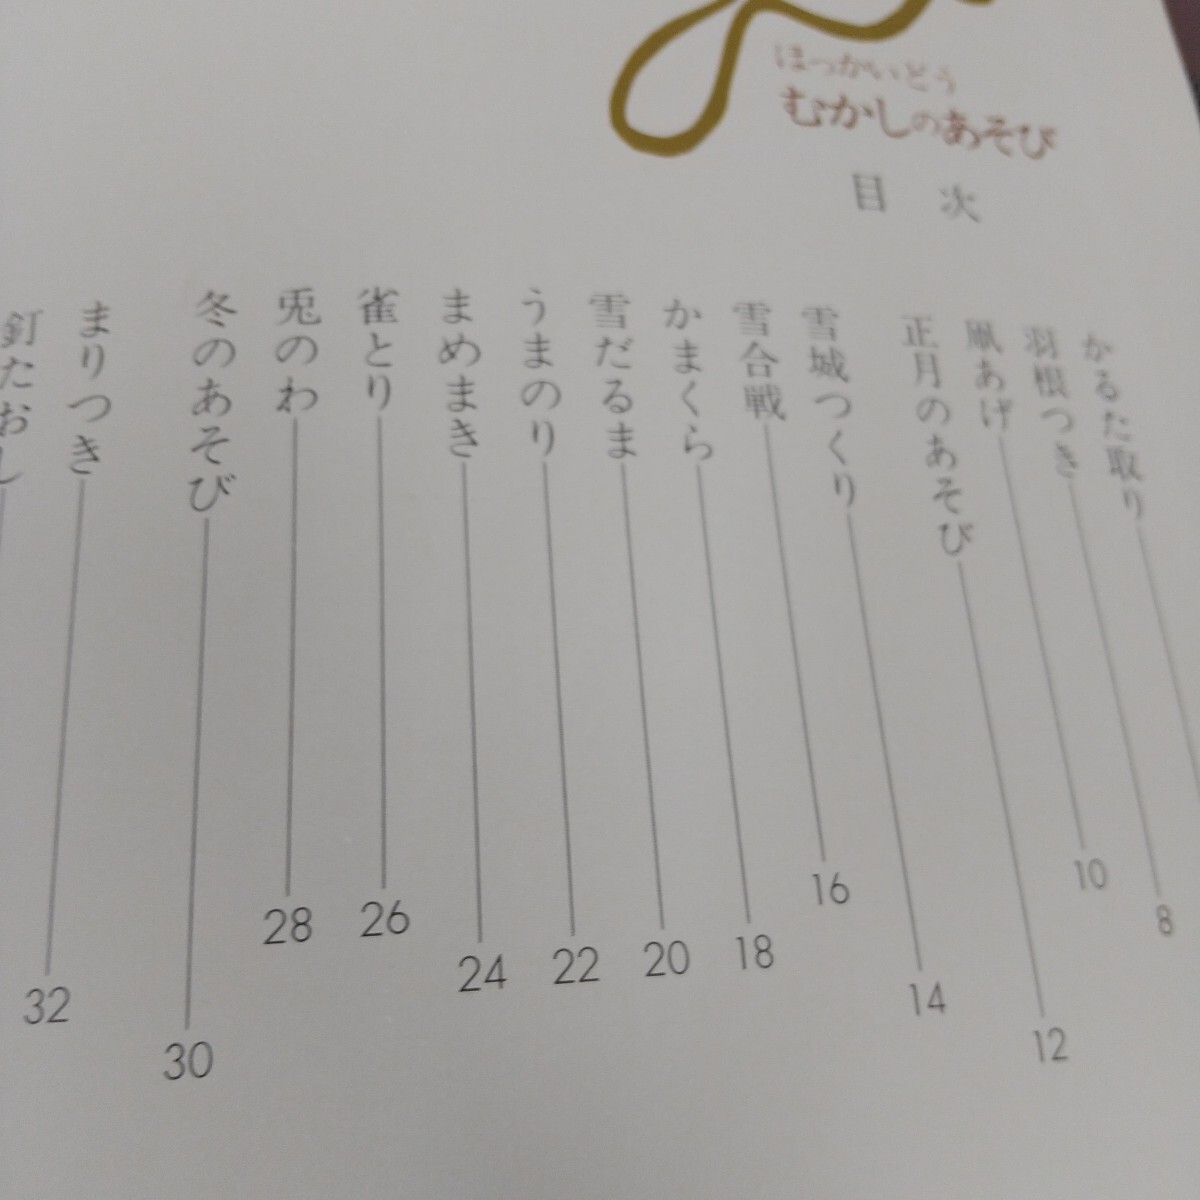 ほっかいどう
むかしのあそび
目次
かるた取り
羽根つき 8
凧あげ 10
正月のあそび 12
雪城つくり 14
雪合戦 16
かまくら 18
雪だるま 20
うまのり 22
まめまき 24
雀とり 26
兎のわ 28
冬のあそび 30
まりつき 32
釘たおし